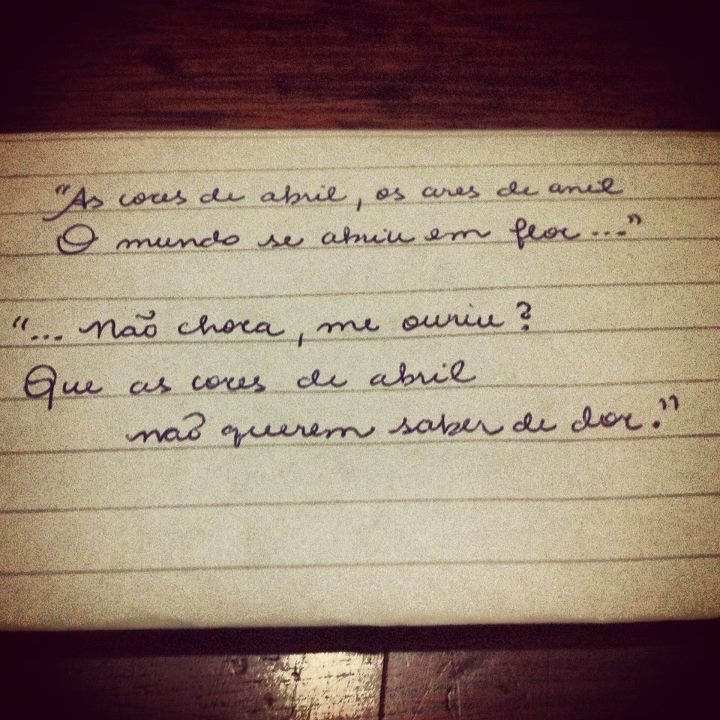 "As cores de abril, os ares de anil
O mundo se abriu em flor..."
"... não chora, me ouviu?
Que as cores de abril
não querem saber de dor."